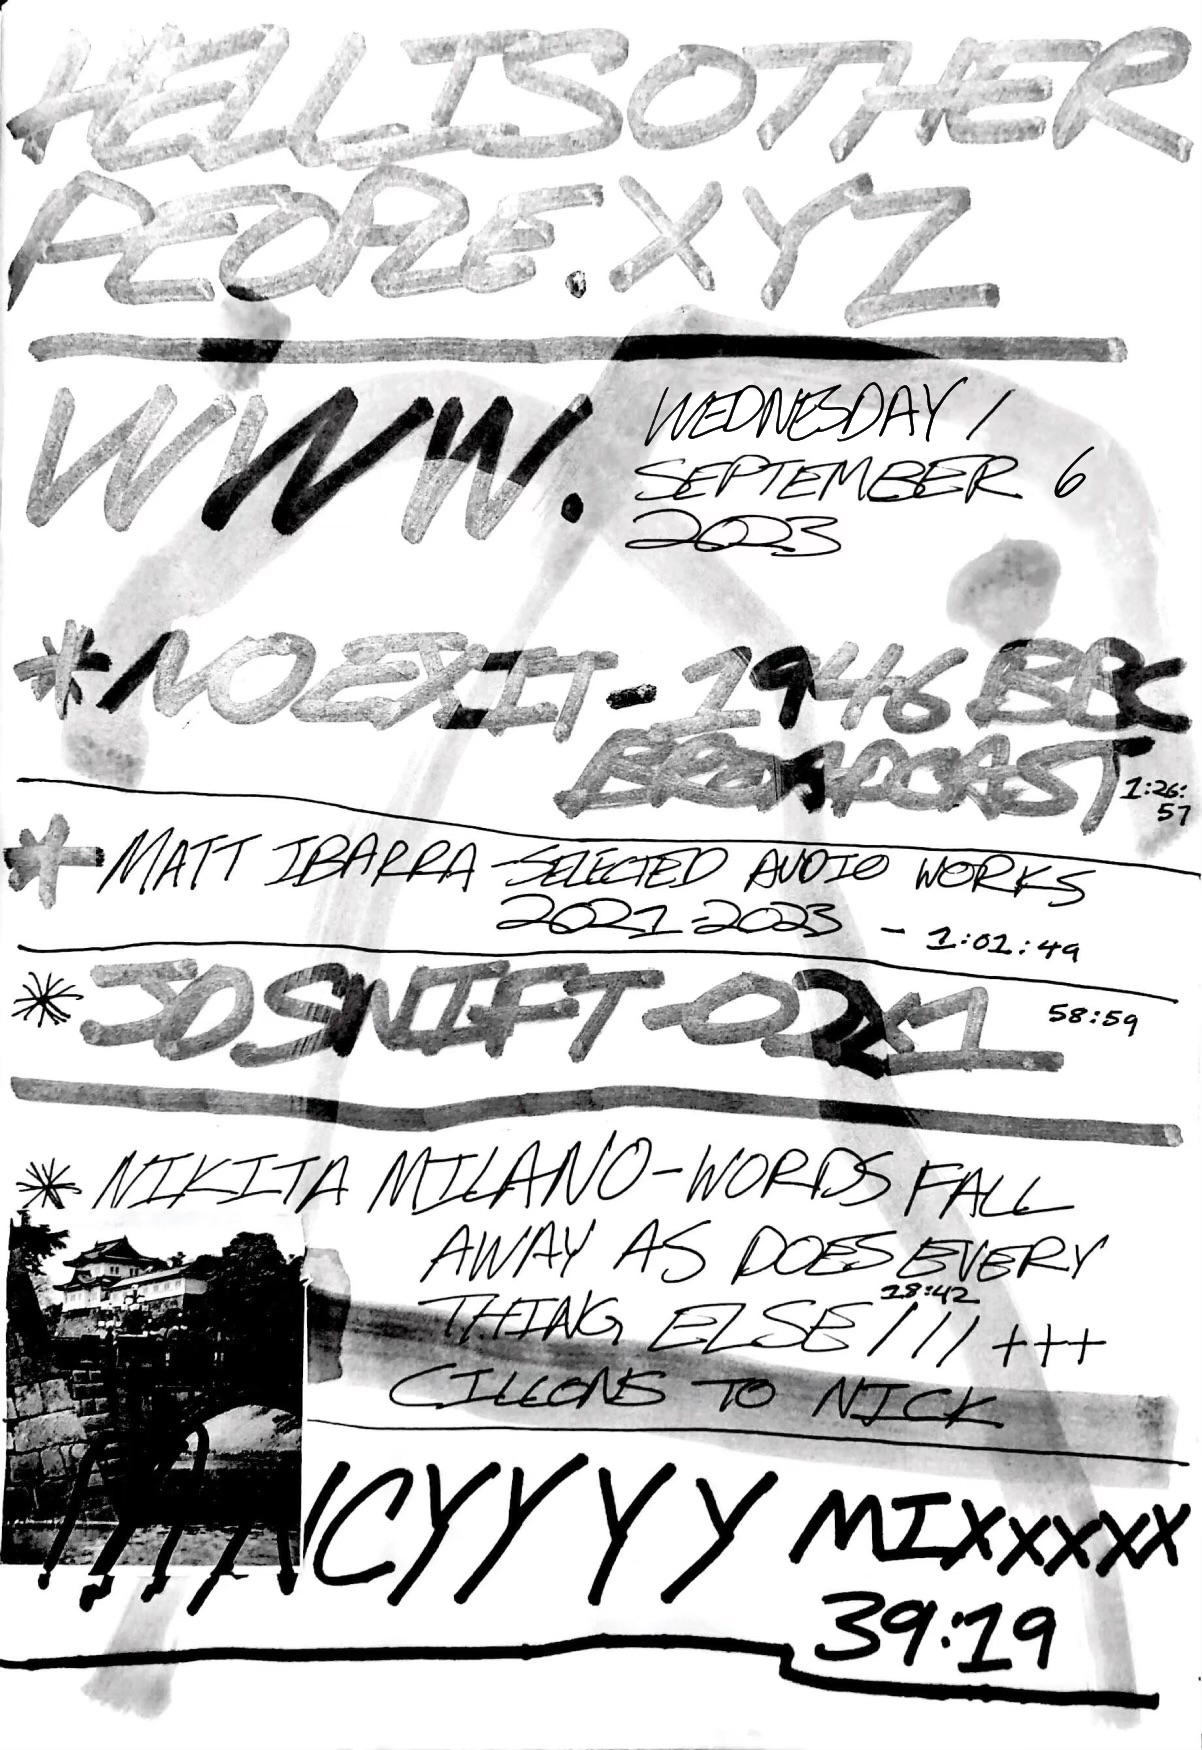 HELLISOTHER
PEOPLE.XYZ
WWW.
WEDNESDAY /
SEPTEMBER 6
2023
*NO EXIT - 1946 BBC
BROADCAST 1:26:
57
* MATT IBARRA - SELECTED AUDIO WORKS
2021-2023 - 1:01:49
* JD SWIFT - 02X1 58:59
* NIKITA MILANO - WORDS FALL
AWAY AS DOES EVERY
THING ELSE /// +++
18:42
TO NICK
CYYYY MIXXXXXX
39:19